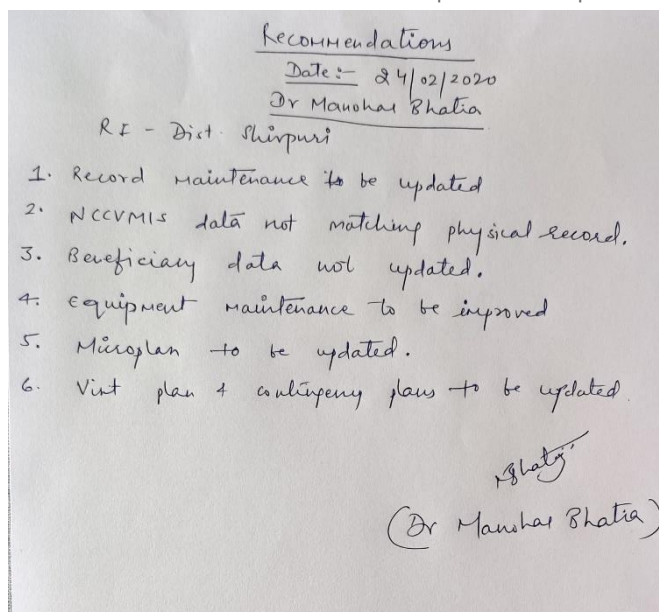 Recommendations
Date:- 24/02/2020
Dr Manohar Bhatia
RI - Dist. Shivpuri
1. Record maintenance to be updated
2. NCCVMIS data not matching physical record.
3. Beneficiary data not updated.
4. Equipment maintenance to be improved
5. Microplan to be updated.
6. Visit plan & contingency plans to be updated.
(Dr Manohar Bhatia)